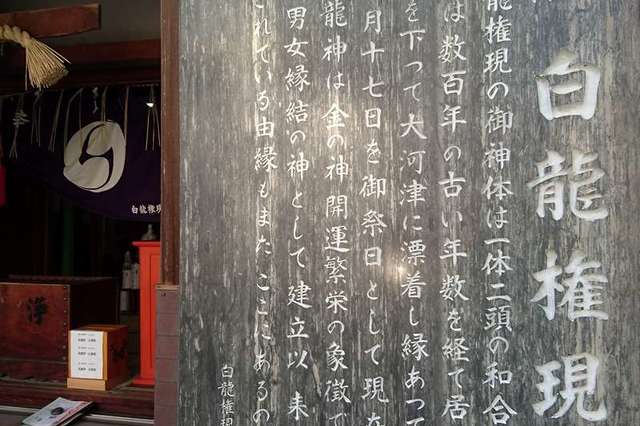 白龍権現
龍権現の御神体は一体二頭の和合
は数百年の古い年数を経て居
を下って大河津に漂着し縁あって
月十七日を御祭日として現在
龍神は金の神開運繁栄の象徴で
男女縁結の神として建立以来
されている由縁もまたここにあるの
白龍権現
奉
白龍権現
浄